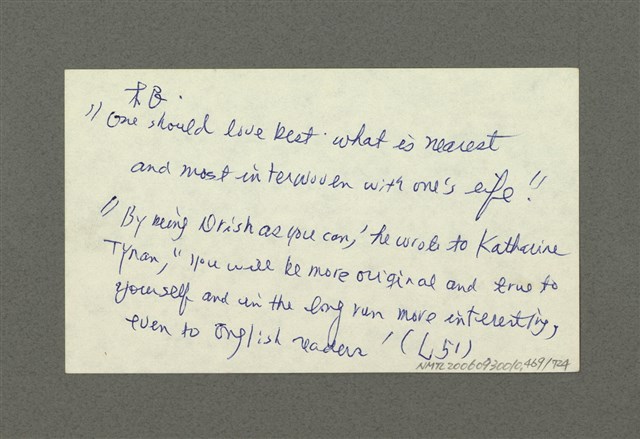 根.
"One should love best what is nearest
and most interwoven with one's life."
"By being Irish as you can," he wrote to Katharine
Tynan, "you will be more original and true to
yourself and in the long run more interesting,
even to English readers" (L 51)
NMTL20060930010.469/724